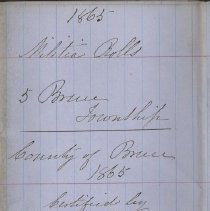 1865
Militia Rolls
5 Bruce
Township
County of Bruce
1865
Certified by